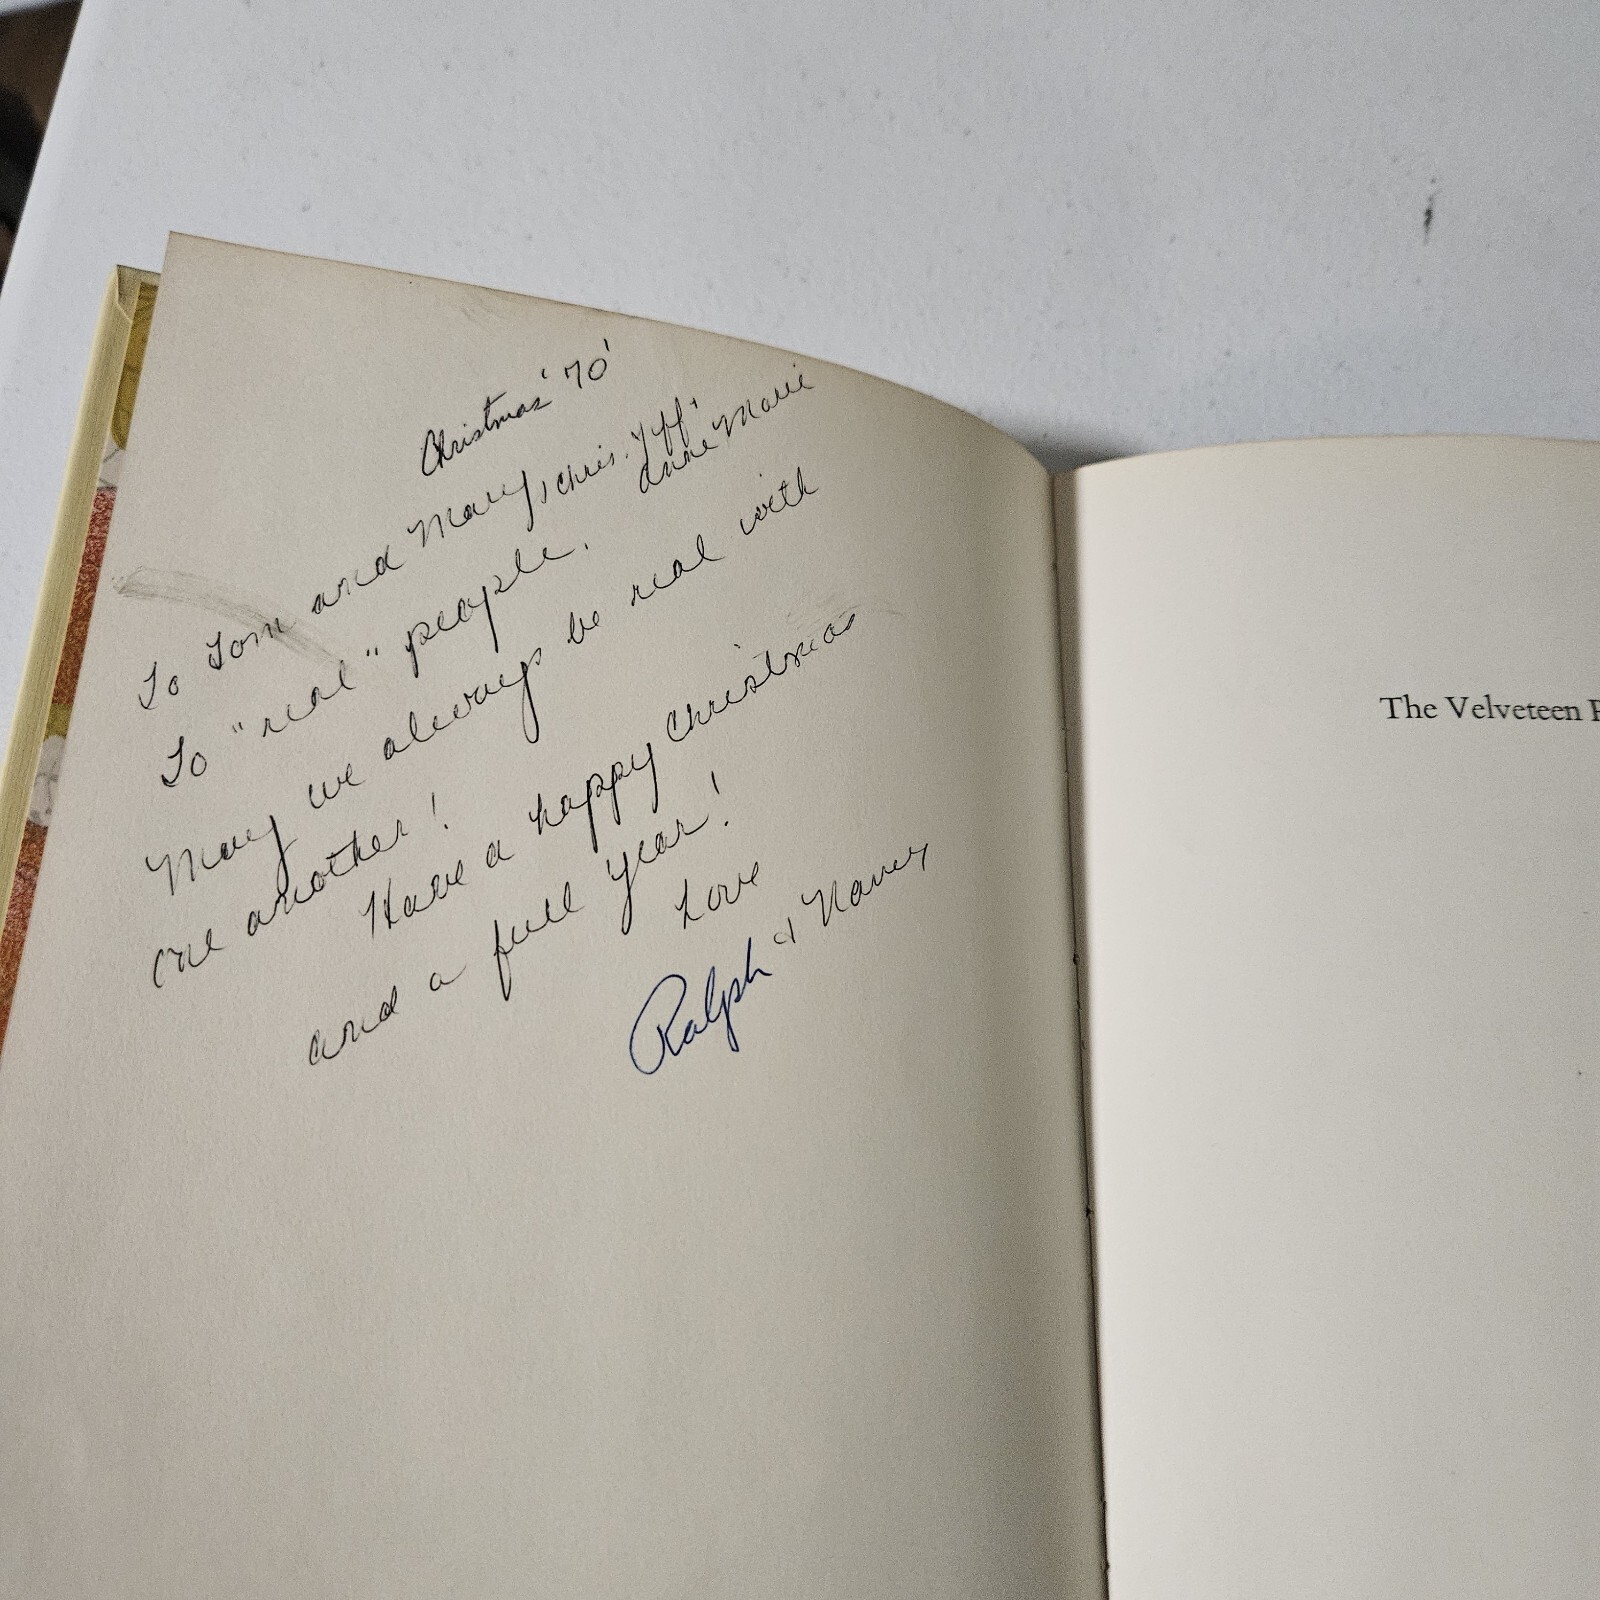 Christmas '70'
To Tom and Mary, Chris, Jeff,
Anne Marie
To "real" people.
May we always be real with
one another!
Have a happy Christmas
and a full year!
Love
Ralph & Nancy
The Velveteen